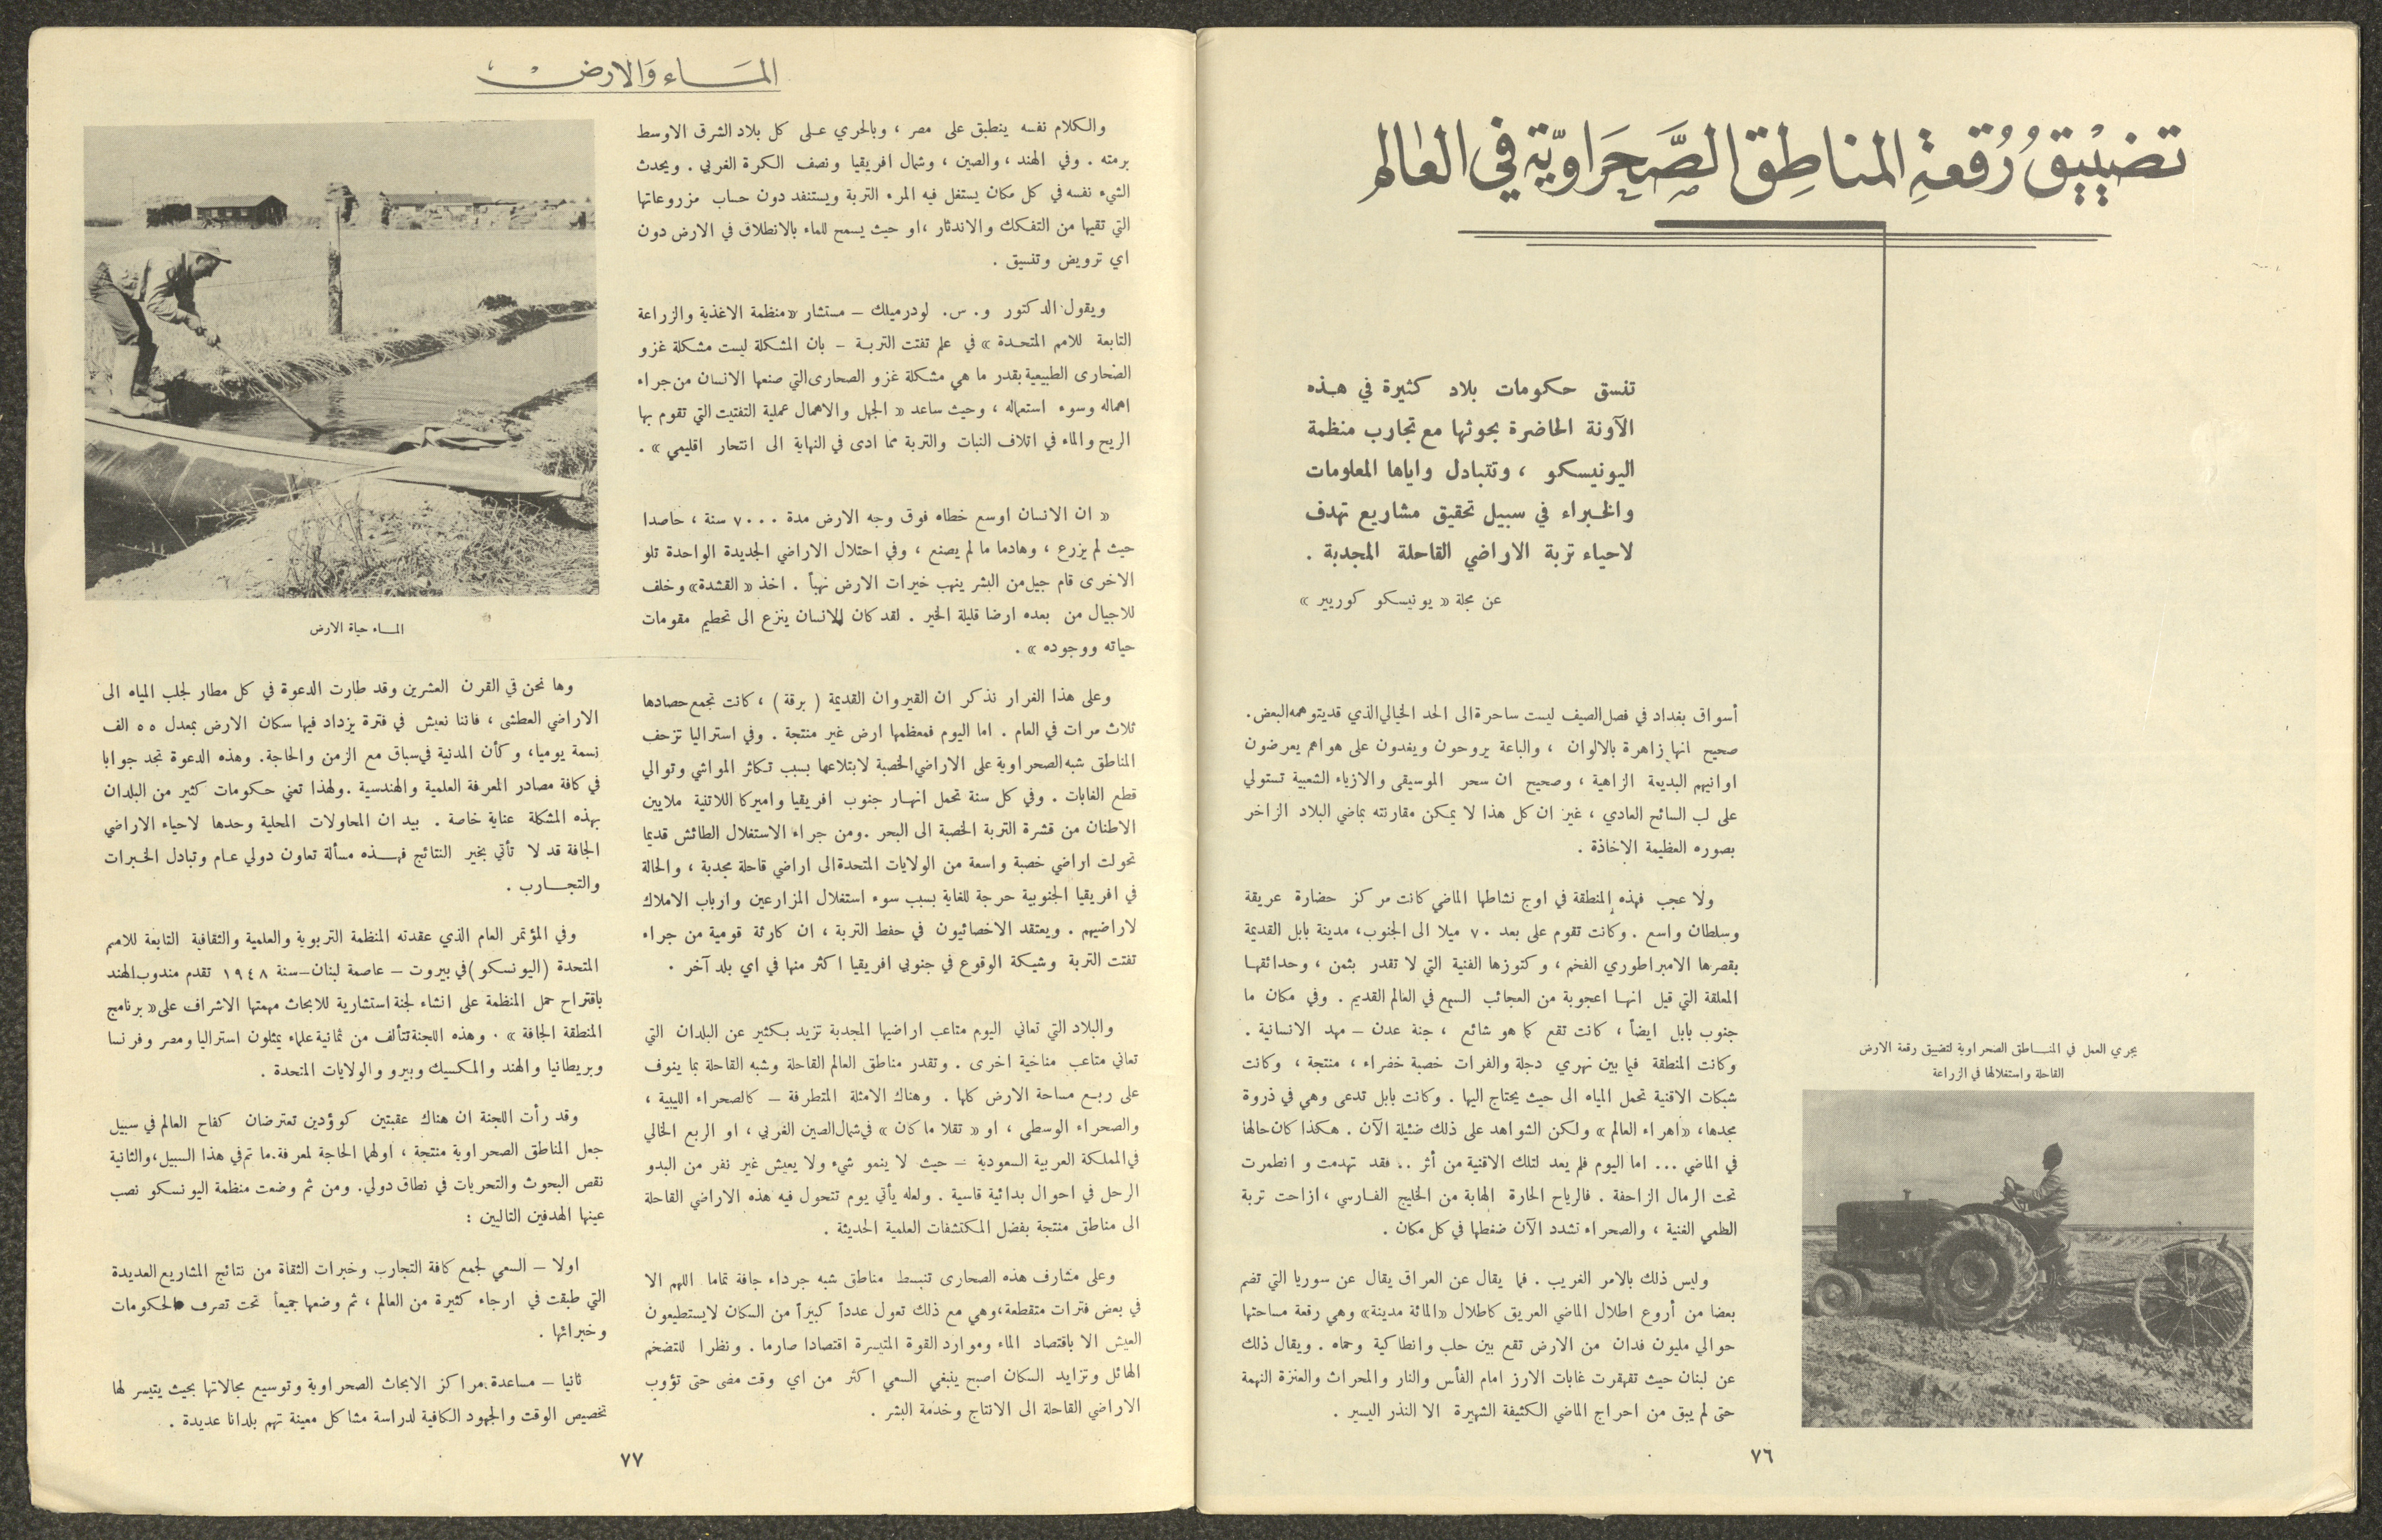 تضييق رقعة المناطق الصحراوية في العالم
تنسق حكومات بلاد كثيرة في هذه
الآونة الحاضرة بحوثها مع تجارب منظمة
اليونيسكو ، وتتبادل واياها المعلومات
والخبراء في سبيل تحقيق مشاريع تهدف
لاحياء تربة الاراضي القاحلة المجدبة .
عن مجلة « يونيسكو كوريير »
أسواق بغداد في فصل الصيف ليست ساحرة الى الحد الخيالي الذي قد يتوهمه البعض.
صحيح انها زاهرة بالالوان ، والباعة يروحون ويغدون على هواهم يعرضون
اوانيهم البديعة الزاهية ، وصحيح ان سحر الموسيقى والازياء الشعبية تستولي
على لب السائح العادي ، غير ان كل هذا لا يمكن مقارنته بماضي البلاد الزاخر
بصوره العظيمة الاخاذة .
ولا عجب فهذه المنطقة في اوج نشاطها الماضي كانت مركز حضارة عريقة
وسلطان واسع . وكانت تقوم على بعد ٧٠ ميلا الى الجنوب، مدينة بابل القديمة
بقصرها الامبراطوري الفخم ، وكنوزها الفنية التي لا تقدر بثمن ، وحدائقها
المعلقة التي قيل انها اعجوبة من العجائب السبع في العالم القديم . وفي مكان ما
جنوب بابل ايضاً ، كانت تقع كما هو شائع ، جنة عدن – مهد الانسانية .
وكانت المنطقة فيما بين نهري دجلة والفرات خصبة خضراء ، منتجة ، وكانت
شبكات الاقنية تحمل المياه الى حيث يحتاج اليها . وكانت بابل تدعى وهي في ذروة
مجدها، «اهراء العالم» ولكن الشواهد على ذلك ضئيلة الآن . هكذا كان حالها
في الماضي ... اما اليوم فلم يعد لتلك الاقنية من أثر .. فقد تهدمت و انطمرت
تحت الرمال الزاحفة . فالرياح الحارة الهابة من الخليج الفارسي ، ازاحت تربة
الطمي الغنية ، والصحراء تشدد الآن ضغطها في كل مكان .
وليس ذلك بالامر الغريب . فما يقال عن العراق يقال عن سوريا التي تضم
بعضا من أروع اطلال الماضي العريق كاطلال «المائة مدينة» وهي رقعة مساحتها
حوالي مليون فدان من الارض تقع بين حلب وانطاكية وحماه . ويقال ذلك
عن لبنان حيث تقهقرت غابات الارز امام الفأس والنار والمحراث والعنزة النهمة
حتى لم يبق من احراج الماضي الكثيفة الشهيرة الا النذر اليسير .
يجري العمل في المناطق الصحراوية لتضييق رقعة الارض
القاحلة واستغلالها في الزراعة
٧٦
الماء والارض
والكلام نفسه ينطبق على مصر ، وبالحري على كل بلاد الشرق الاوسط
برمته . وفي الهند ، والصين ، وشمال افريقيا ونصف الكرة الغربي . ويحدث
الشيء نفسه في كل مكان يستغل فيه المرء التربة ويستنفد دون حساب مزروعاتها
التي تقيها من التفكك والاندثار ،او حيث يسمح للماء بالانطلاق في الارض دون
اي ترويض وتنسيق .
ويقول الدكتور و. س. لودرميلك – مستشار «منظمة الاغذية والزراعة
التابعة للامم المتحدة » في علم تفتت التربة – بان المشكلة ليست مشكلة غزو
الصحارى الطبيعية بقدر ما هي مشكلة غزو الصحارى التي صنعها الانسان من جراء
اهماله وسوء استعماله ، وحيث ساعد « الجهل والاهمال عملية التفتيت التي تقوم بها
الريح والماء في اتلاف النبات والتربة مما ادى في النهاية الى انتحار اقليمي » .
« ان الانسان اوسع خطاه فوق وجه الارض مدة ٧٠٠٠ سنة ، حاصدا
حيث لم يزرع ، وهادما ما لم يصنع ، وفي احتلال الاراضي الجديدة الواحدة تلو
الاخرى قام جيل من البشر ينهب خيرات الارض نهباً . اخذ « القشدة» وخلف
للاجيال من بعده ارضا قليلة الخير . لقد كان الانسان ينزع الى تحطيم مقومات
حياته ووجوده » .
وعلى هذا الغرار نذكر ان القيروان القديمة ( برقة ) ، كانت تجمع حصادها
ثلاث مرات في العام . اما اليوم فمعظمها ارض غير منتجة . وفي استراليا تزحف
المناطق شبه الصحراوية على الاراضي الخصبة لابتلاعها بسبب تكاثر المواشي وتوالي
قطع الغابات . وفي كل سنة تحمل انهار جنوب افريقيا واميركا اللاتنية ملايين
الاطنان من قشرة التربة الخصبة الى البحر .ومن جراء الاستغلال الطائش قديما
تحولت اراضي خصبة واسعة من الولايات المتحدة الى اراضي قاحلة مجدبة ، والحالة
في افريقيا الجنوبية حرجة للغاية بسبب سوء استغلال المزارعين وارباب الاملاك
لاراضيهم . ويعتقد الاخصائيون في حفظ التربة ، ان كارثة قومية من جراء
تفتت التربة وشيكة الوقوع في جنوبي افريقيا اكثر منها في اي بلد آخر .
والبلاد التي تعاني اليوم متاعب اراضيها المجدبة تزيد بكثير عن البلدان التي
تعاني متاعب مناخية اخرى . وتقدر مناطق العالم القاحلة وشبه القاحلة بما ينوف
على ربع مساحة الارض كلها . وهناك الامثلة المتطرفة – كالصحراء الليبية ،
والصحراء الوسطى ، او « تقلا ماكان » في شمال الصين الغربي ، او الربع الخالي
في المملكة العربية السعودية – حيث لا ينمو شيء ولا يعيش غير نفر من البدو
الرحل في احوال بدائية قاسية . ولعله يأتي يوم تتحول فيه هذه الاراضي القاحلة
الى مناطق منتجة بفضل المكتشفات العلمية الحديثة .
وعلى مشارف هذه الصحارى تنبسط مناطق شبه جرداء جافة تماما اللهم الا
في بعض فترات متقطعة،وهي مع ذلك تعول عدداً كبيراً من السكان لايستطيعون
العيش الا باقتصاد الماء وموارد القوة المتيسرة اقتصادا صارما . ونظرا للتضخم
الهائل وتزايد السكان اصبح ينبغي السعي اكثر من اي وقت مضى حتى تؤوب
الاراضي القاحلة الى الانتاج وخدمة البشر .
الماء حياة الارض
وها نحن في القرن العشرين وقد طارت الدعوة في كل مطار لجلب المياه الى
الاراضي العطشى ، فاننا نعيش في فترة يزداد فيها سكان الارض بمعدل ٥٥ الف
نسمة يوميا، وكأن المدنية في سباق مع الزمن والحاجة. وهذه الدعوة تجد جوابا
في كافة مصادر المعرفة العلمية والهندسية .ولهذا تعني حكومات كثير من البلدان
بهذه المشكلة عناية خاصة . بيد ان المحاولات المحلية وحدها لاحياء الاراضي
الجافة قد لا تأتي بخير النتائج فهذه مسألة تعاون دولي عام وتبادل الخبرات
والتجارب .
وفي المؤتمر العام الذي عقدته المنظمة التربوية والعلمية والثقافية التابعة للامم
المتحدة (اليونسكو)في بيروت – عاصمة لبنان–سنة ١٩٤٨ تقدم مندوب الهند
باقتراح حمل المنظمة على انشاء لجنة استشارية للابحاث مهمتها الاشراف على« برنامج
المنطقة الجافة » . وهذه اللجنة تتألف من ثمانية علماء يمثلون استراليا ومصر وفرنسا
وبريطانيا والهند والمكسيك وبيرو والولايات المتحدة .
وقد رأت اللجنة ان هناك عقبتين كوؤدين تعترضان كفاح العالم في سبيل
جعل المناطق الصحراوية منتجة ، اولهما الحاجة لمعرفة ما تم في هذا السبيل،والثانية
نقص البحوث والتحريات في نطاق دولي. ومن ثم وضعت منظمة اليونسكو نصب
عينها الهدفين التاليين :
اولا – السعي لجمع كافة التجارب وخبرات الثقاة من نتائج المشاريع العديدة
التي طبقت في ارجاء كثيرة من العالم ، ثم وضعها جميعاً تحت تصرف الحكومات
وخبرائها .
ثانيا – مساعدة مراكز الابحاث الصحراوية وتوسيع مجالاتها بحيث يتيسر لها
تخصيص الوقت والجهود الكافية لدراسة مشاكل معينة تهم بلدانا عديدة .
٧٧